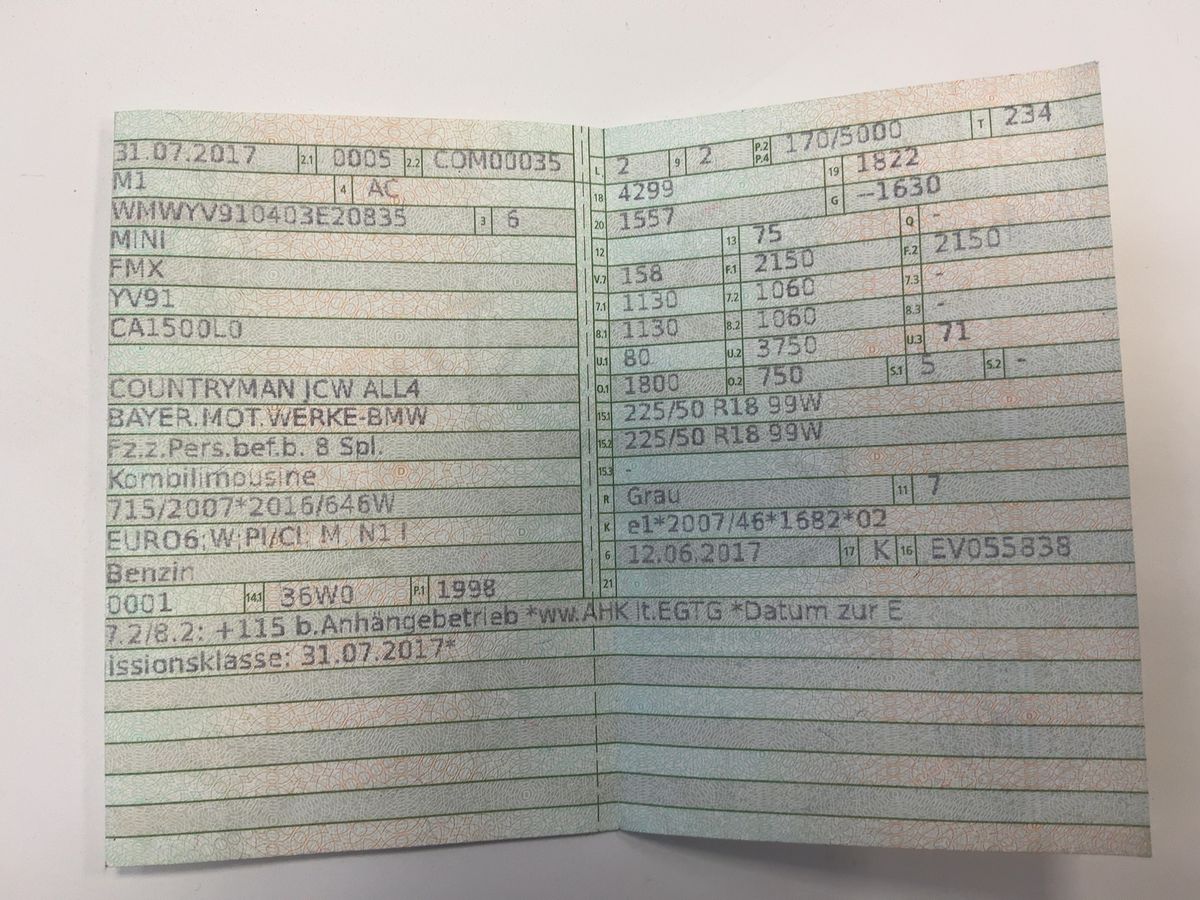 31.07.2017 2.1 0005 2.2 COM00035
M1 4 AC
WMWYV910403E20835 3 6
MINI
FMX
YV91
CA1500L0
COUNTRYMAN JCW ALL4
BAYER.MOT.WERKE-BMW
Fz.z.Pers.bef.b. 8 Spl.
Kombilimousine
715/2007*2016/646W
EURO6;W;PI/CI; M, N1 I
Benzin
0001 14.1 36W0 P.1 1998
L 2 9 2 P.2 P.4 170/5000 T 234
18 4299 19 1822
20 1557 G —1630
12 13 75 Q -
V.7 158 F.1 2150 F.2 2150
7.1 1130 7.2 1060 7.3 -
8.1 1130 8.2 1060 8.3 -
U.1 80 U.2 3750 U.3 71
O.1 1800 O.2 750 S.1 5 S.2 -
15.1 225/50 R18 99W
15.2 225/50 R18 99W
15.3 -
R Grau 11 7
K e1*2007/46*1682*02
6 12.06.2017 17 K 16 EV055838
21
7.2/8.2: +115 b.Anhängebetrieb *ww.AHK lt.EGTG *Datum zur E
issionsklasse: 31.07.2017*